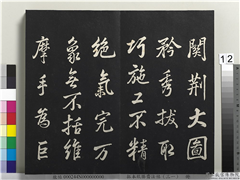 關荆大圖
矜秀拔取
巧施工不精
絶氣完万
象無不括維
摩手為巨
12